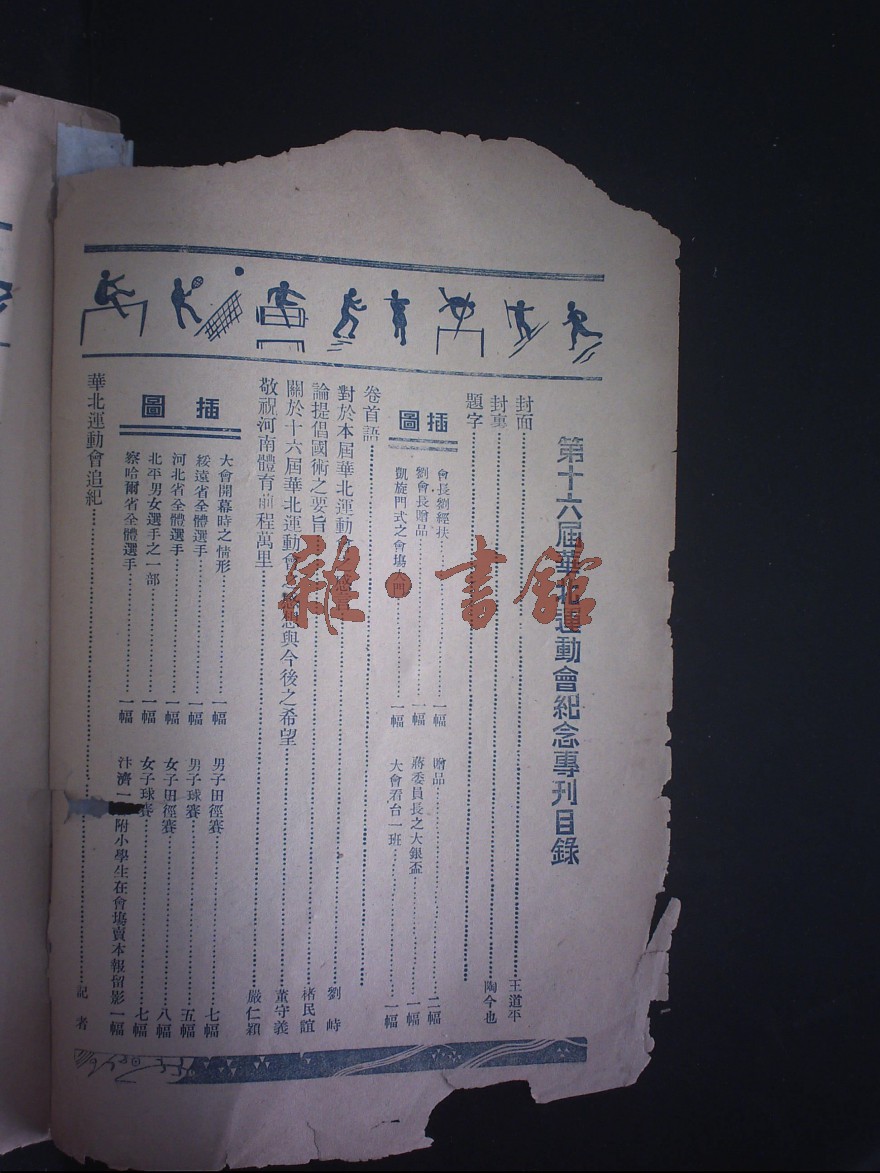 第十六屆華北運動會紀念專刊目錄
封面……王道平
封裏……陶今也
題字……
插圖
會長劉經扶……一幅
贈品……二幅
劉會長贈品……一幅
蔣委員長之大銀盃……一幅
凱旋門式之會場大門……一幅
大會看台一班……一幅
卷首語……
對於本屆華北運動會 感言……劉峙
論提倡國術之要旨……褚民誼
關於十六屆華北運動會之感想與今後之希望……董守義
敬祝河南體育前程萬里……嚴仁穎
插圖
大會開幕時之情形……一幅
男子田徑賽……七幅
綏遠省全體選手……一幅
男子球賽……五幅
河北省全體選手……一幅
女子田徑賽……八幅
北平男女選手之一部……一幅
女子球賽……七幅
察哈爾省全體選手……一幅
汴濟一 附小學生在會塲賣本報留影一幅
華北運動會追紀……記者
雜·書館